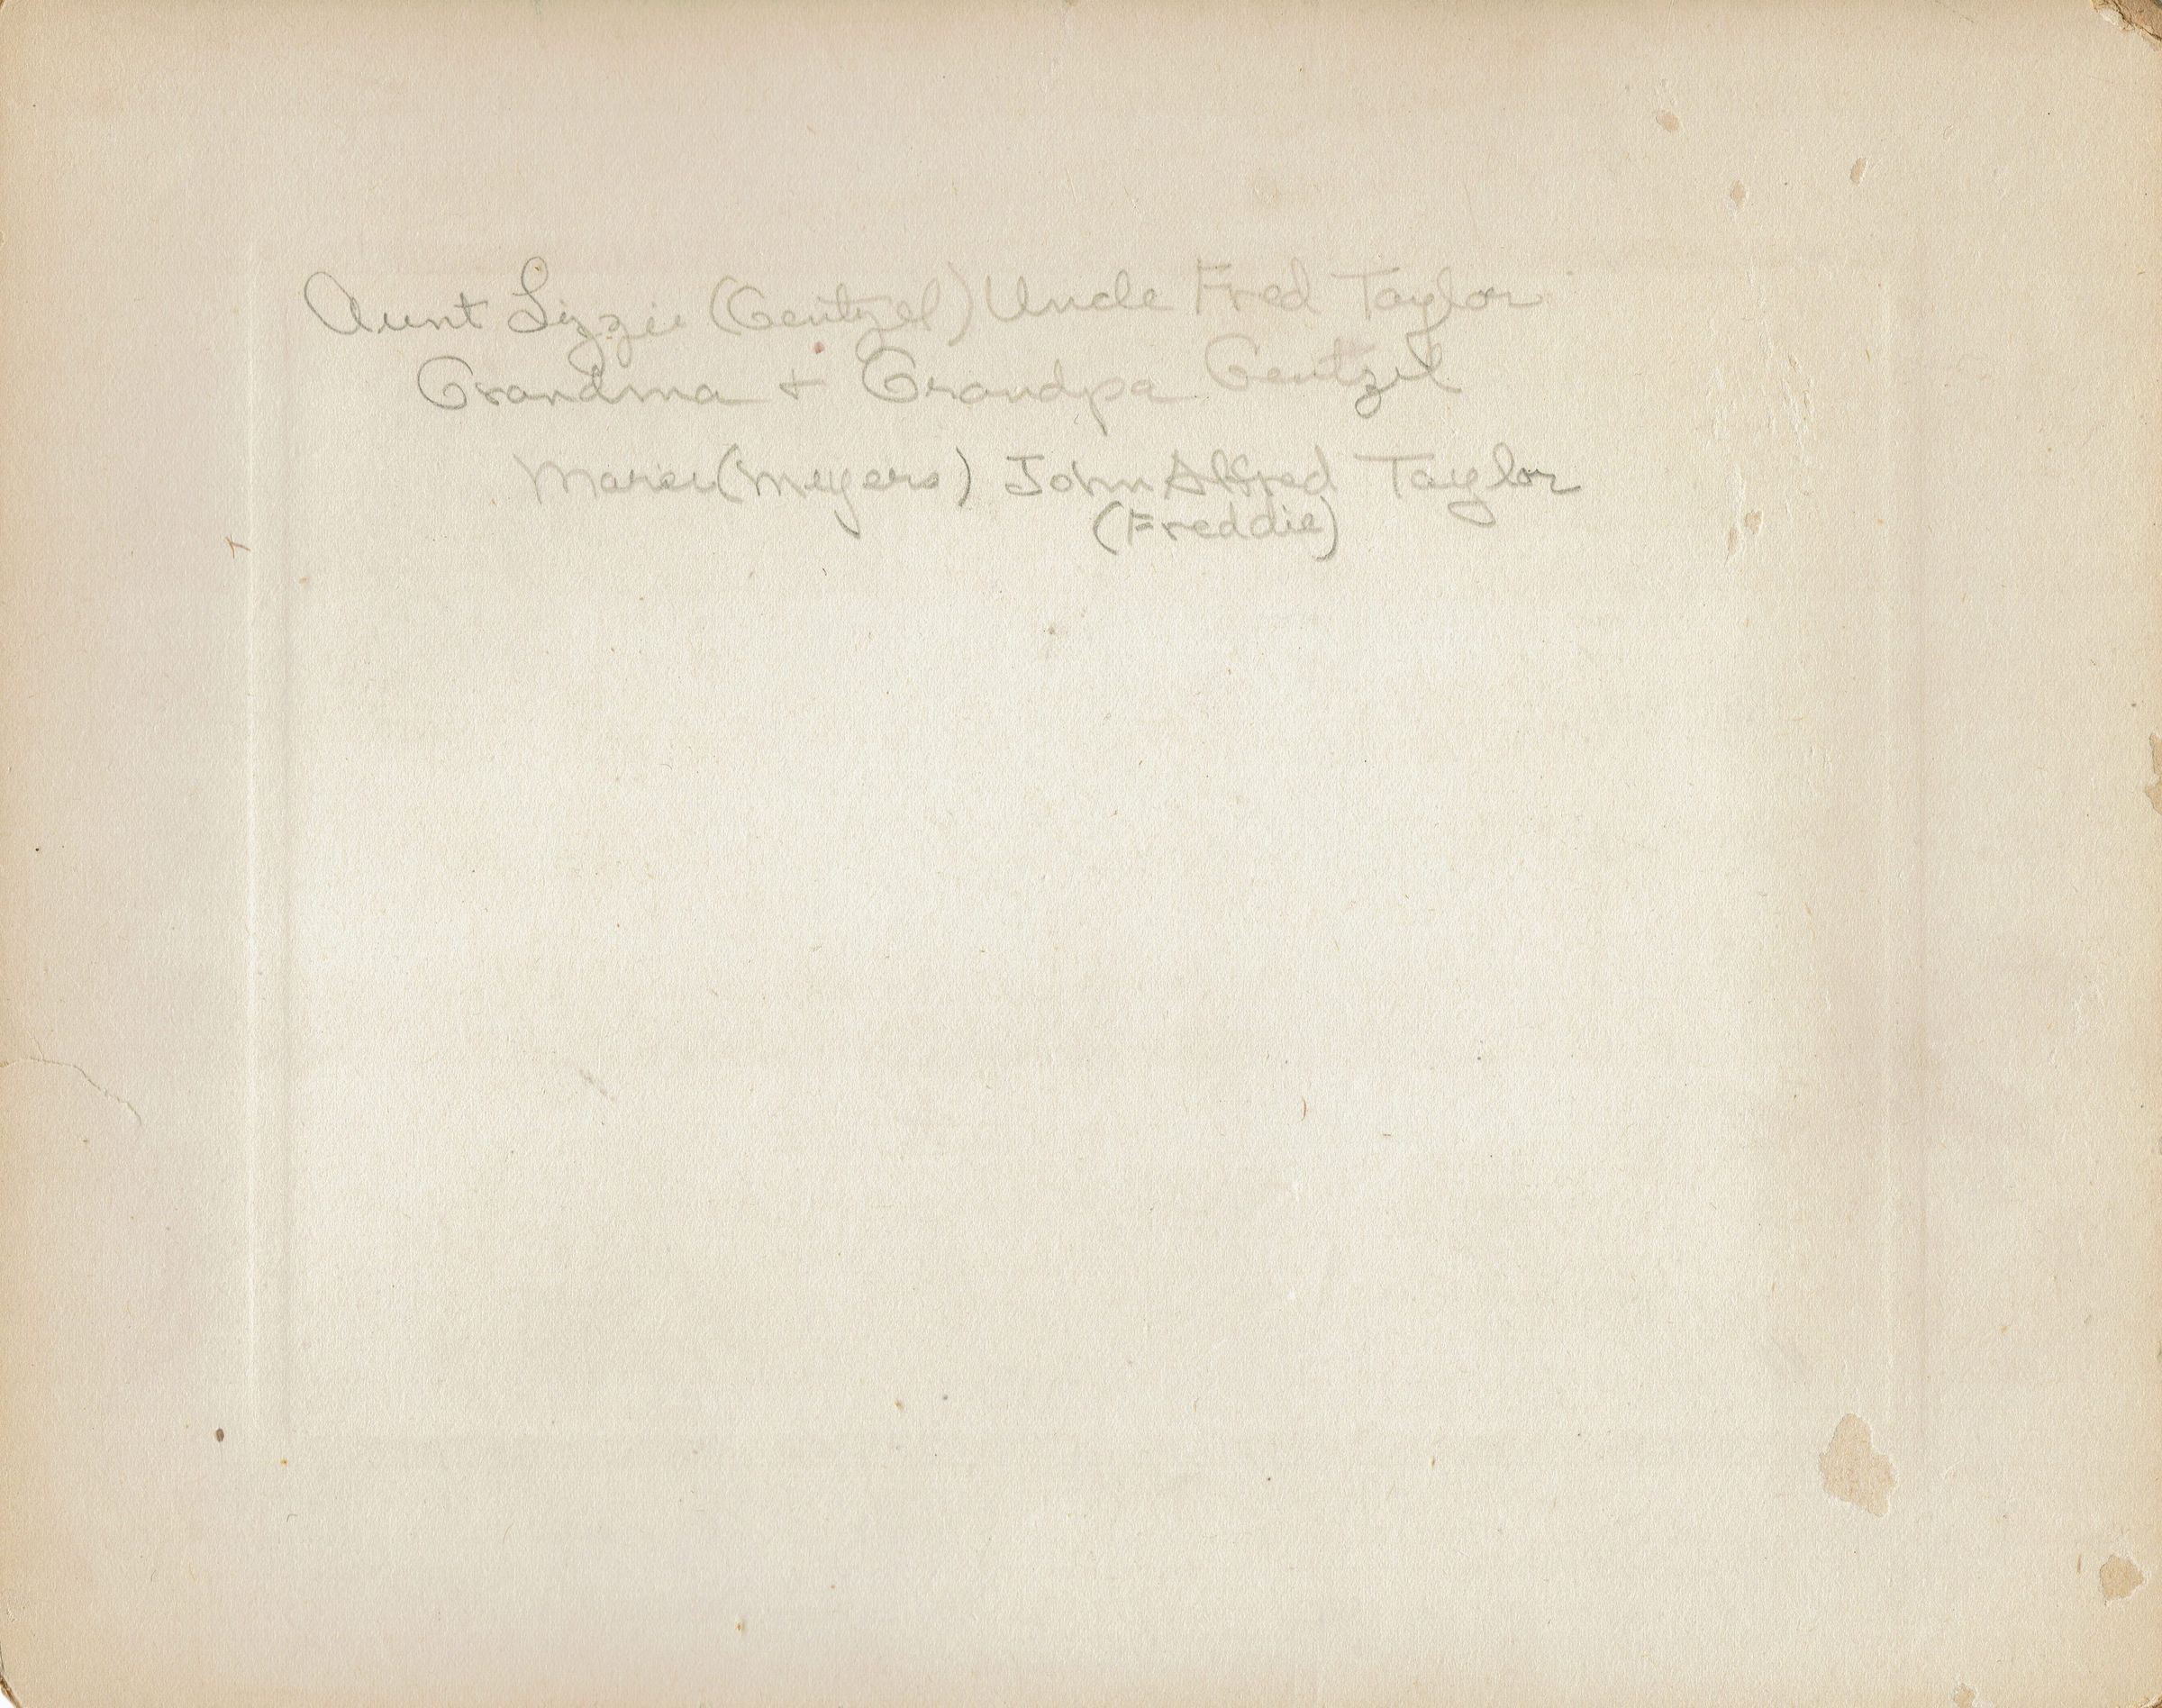 Aunt Lizzie (Gentzel) Uncle Fred Taylor
Grandma + Grandpa Gentzel
(Meyers) John Alfred Taylor
(Freddie)